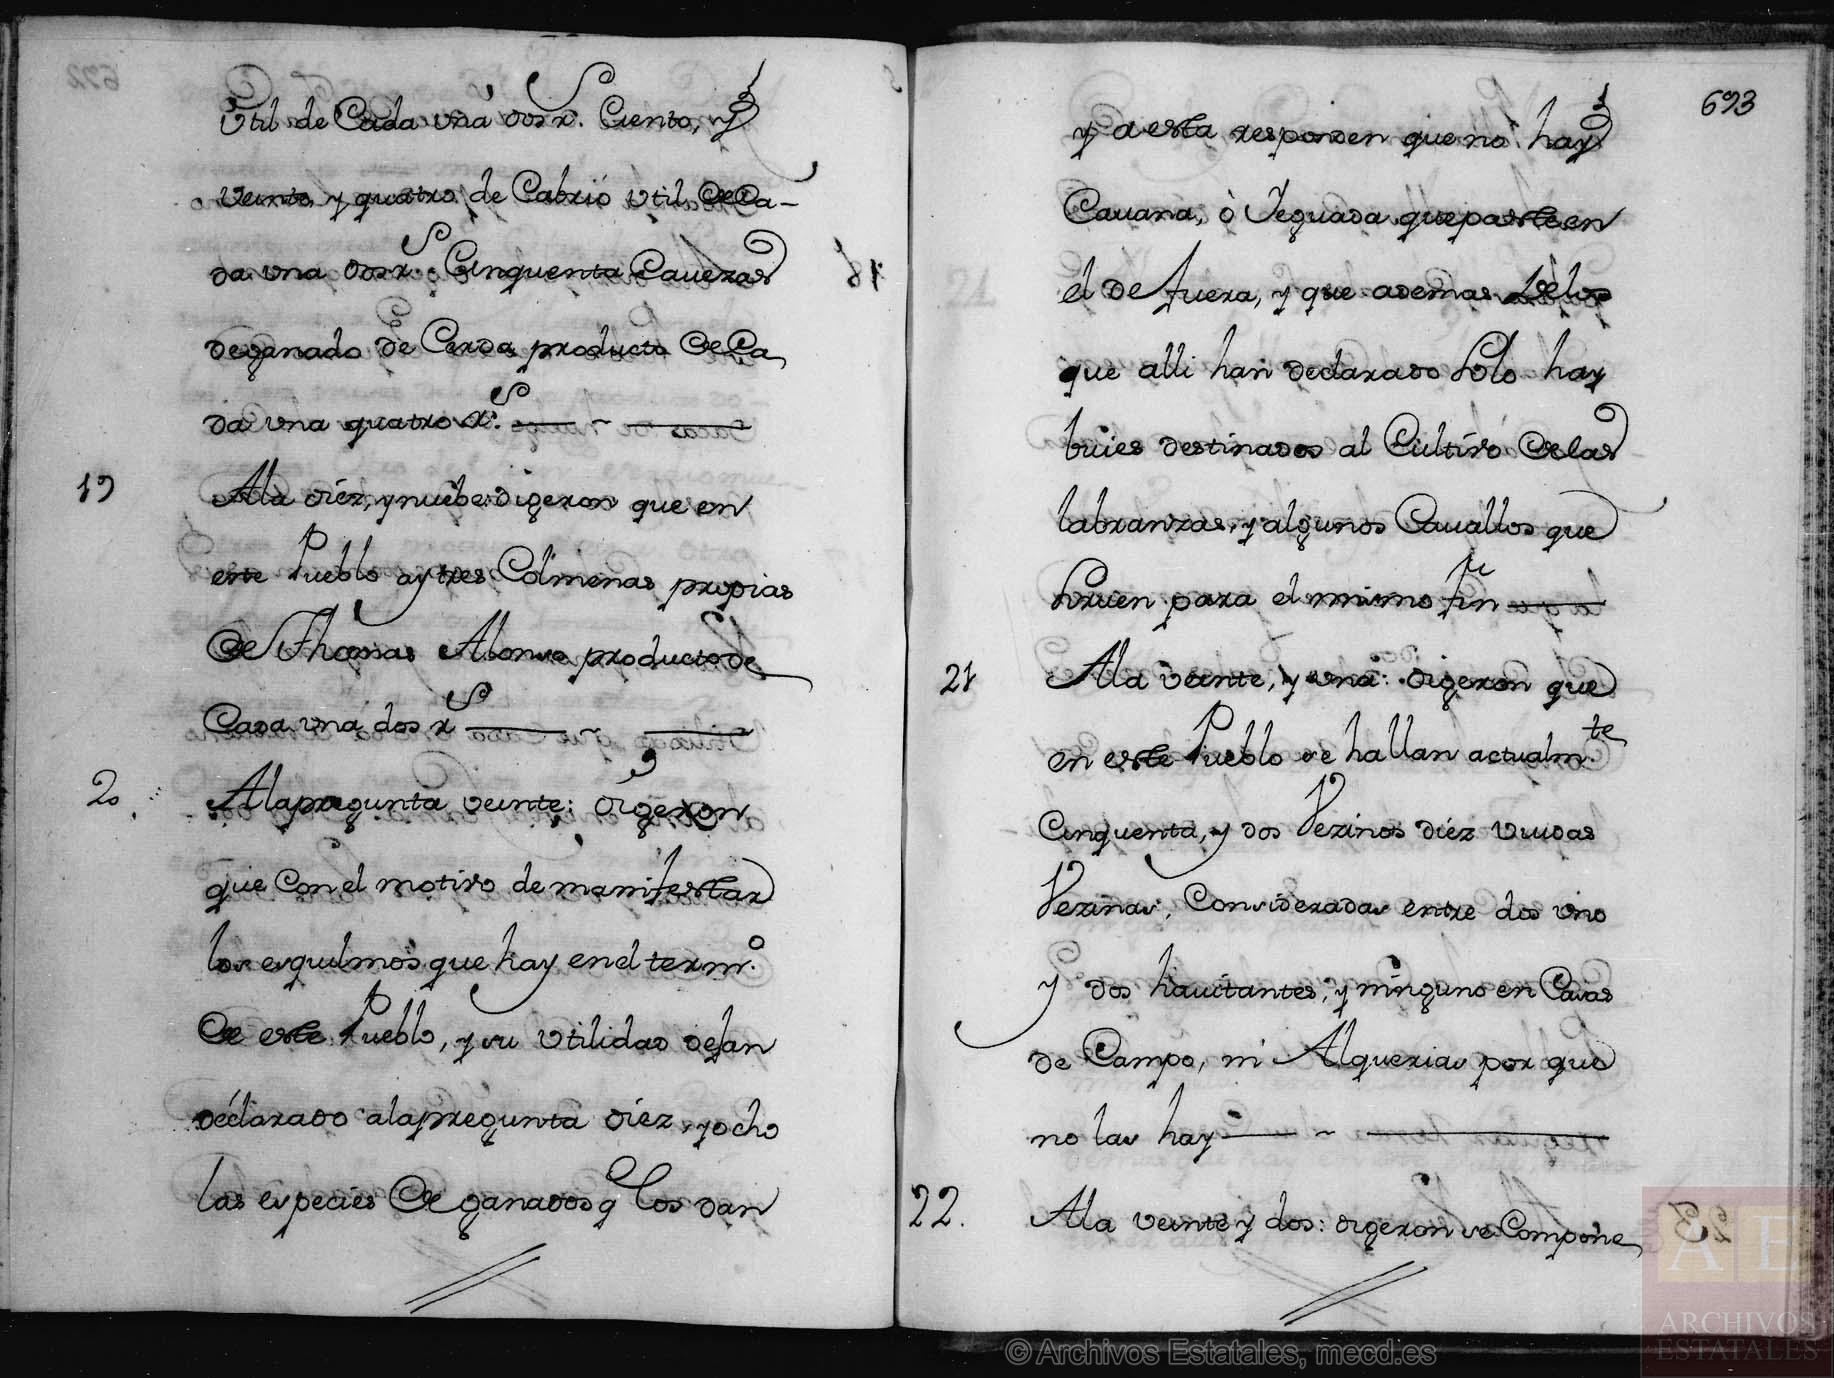 Vtil de Cada vna dos r.s Ciento, y
veinte y quatro de Cabrio vtil de Ca-
da vna dos r.s Cinquenta Cauezas
de ganado de Cerda producto de Ca
da vna quatro r.s
19
Ala diez, y nuebe: digeron que en
este Pueblo ay tres Colmenas propias
de Thomas Alonso producto de
Cada vna dos r.s
20
Ala pregunta veinte: digeron
que con el motivo de manifestar
los esquilmos que hay en el term.o
de este Pueblo, y su vtilidad dejan
declarado ala pregunta diez, y ocho
las especies de ganados q los dan
693
y a esta responden que no hay
Cauana, ò Yeguada que paste en
el de fuera, y que ademas de los
que alli han declarado solo hay
buies destinados al Cultivo de las
labranzas, y algunos Cauallos que
siruen para el mismo fin
21
Ala veinte, y vna: digeron que
en este Pueblo se hallan actualm.te
Cinquenta, y dos Vezinos diez viudas
Vezinas, Consideradas entre dos vno
y dos hauitantes, y ninguno en Casas
de Campo, ni Alquerias por que
no las hay
22.
Ala veinte y dos: digeron se Compone
AE
ARCHIVOS
ESTATALES
© Archivos Estatales, mecd.es